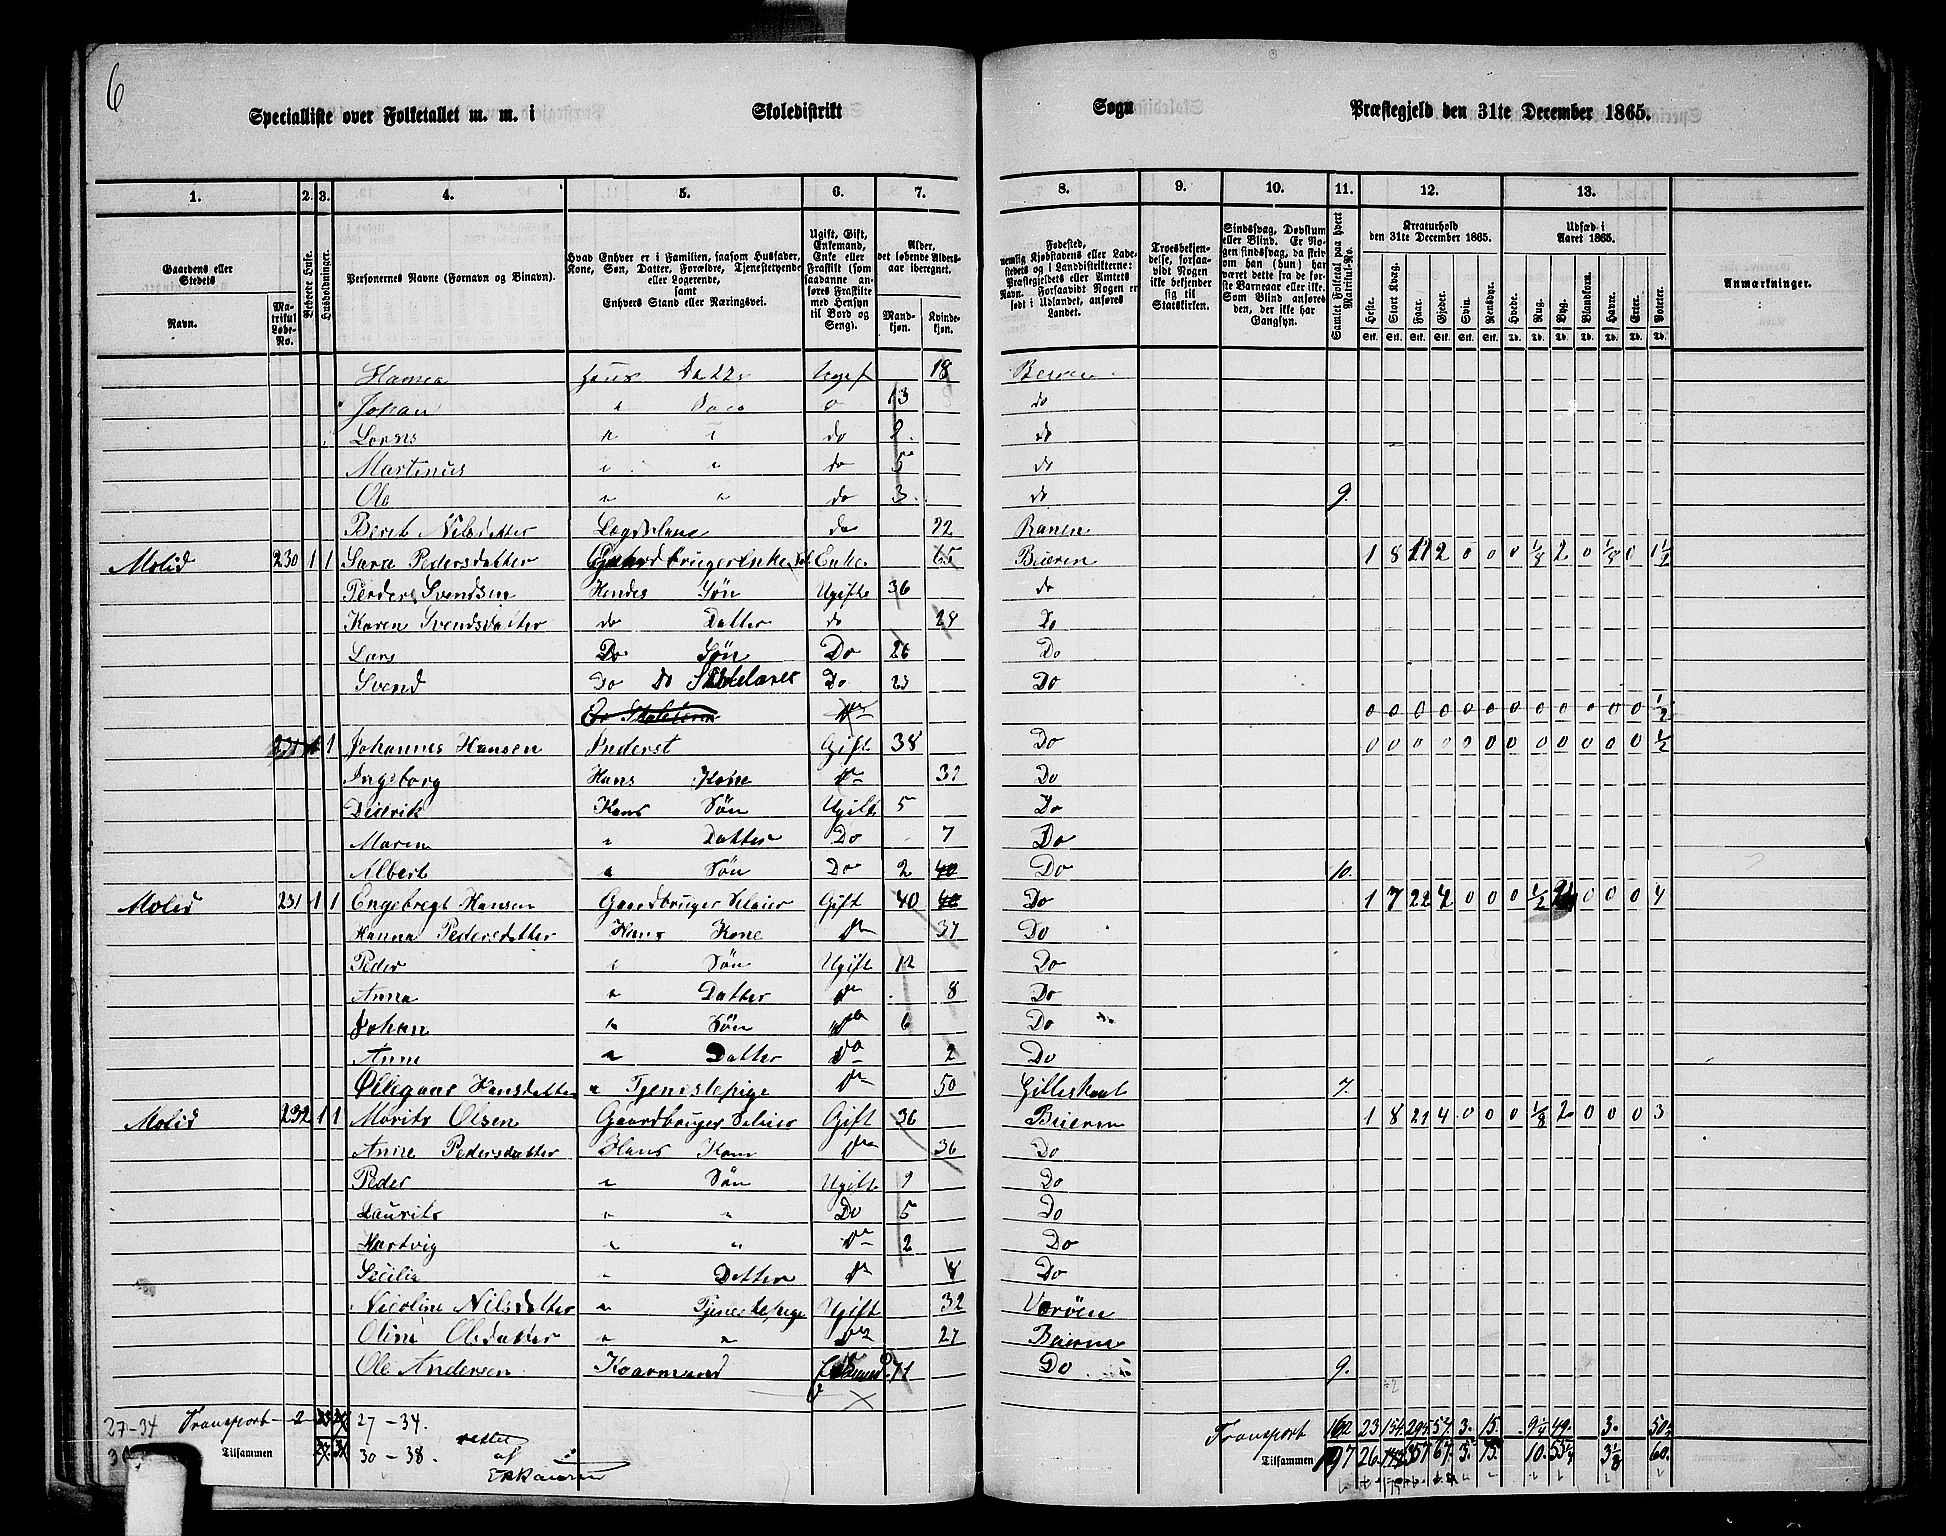 6
Specialliste over Folketallet m. m. i Skoledistrikt Sogn Præstegjeld den 31te December 1865.
1. 2. 3. 4. 5. 6. 7. 8. 9. 10. 11. 12. 13.
Gaardens eller Stedets Navn. Matrikul Løbe-No. Beboede Huse. Husholdninger.
Personernes Navne (Fornavn og Binavn).
Hvad Enhver er i Familien, saasom Husfader, Kone, Søn, Datter, Forældre, Tjenestetyende eller Logerende, samt Enhvers Stand eller Næringsvei.
Ugift, Gift, Enkemand, Enke eller Fraskilt (som saadanne anføres Fraskilte med Hensyn til Bord og Seng).
Alder, det løbende Aldersaar iberegnet. Mandkjøn. Kvindekjøn.
Fødested, nemlig Kjøbstadens eller Ladestedets og i Landdistrikterne: Præstegjeldets eller Amtets Navn. Forsaavidt Nogen er født i Udlandet, anføres Landet.
Troesbekjendelse, forsaavidt Nogen ikke bekjender sig til Statskirken.
Sindssvag, Døvstum eller Blind. Er Nogen sindssvag, da skrives om han (hun) har været dette fra de første Barneaar eller ikke. Som Blind anføres den, der ikke har Gangsyn.
Samlet Folketal paa hvert Matrikul-No.
Kreaturhold den 31te December 1865. Heste. Stort Kvæg. Faar. Gjeder. Svin. Rensdyr.
Udsæd i Aaret 1865. Hvede. Rug. Byg. Blandkorn. Havre. Erter. Poteter.
Anmærkninger.
Hansea Hans Datter Ugift 18
Johan " 13 do
Lorns " do do
Martinus " " do 5 do
Ole " " do 3 do 9.
Berit Nilsdatter Lægdslane do 22 Ranen
Molid 230 1 1 Sara Pedersdatter Gaardbrugerenke Enke 65 Bieren 1 8 2 0 0 0 2 0 0
Peder Svendsen Hendes Søn Ugifte 36 do
Karen Svendsdatter do Datter do Do
Lars Do Søn Do 26 Do
Svend Do Do Skolelærer Do 23 Do
0 0 0 0 0 0 0 0 0 0 0 0 1/2
231 1 1 Johannes Hansen Inderst Gift 38 Do 0 0 0 0 0 0 0 0 0 0 0 0 1/2
Ingeborg Hans Kone Do 32 Do
Diderik Hans Søn Ugift 5 Do
Maren " Datter Do 7 Do
Albert " Søn Do 2 Do 10.
Molid 231 1 1 Engebregt Hansen Gaardbruger Selveier Gift 40 Do 1 7 22 0 0 0 1/2 0 0 0 4
Hanna Pedersdatter Hans Kone Do 37 Do
Peder " Søn Ugift 12 Do
Anna " Datter Do 8 Do
Johan " Søn Do 6 Do
Anne " Datter Do 2 Do
Hansdatter " Tjenestepige Do 50 Gilleskaal 7.
Molid 232 1 1 Morits Olsen Gaardbruger Selveier Gift 36 Bieren 1 8 21 4 0 0 0 1/8 2 0 0 0 3
Anne Pedersdatter Hans Kone Do 36 Do
Peder " Søn Ugift 9 Do
Laurits " " Do 5 Do
Hartvig " " Do 2 Do
Secilie " Datter Do Do
Nicoline Nilsdatter " Tjenestepige Ugift 32 Værøen
Oline Olsdatter " " Do 27 Beieren
Ole Andersen Kaarmand Enkemand 71 Do 9.
27-34 Transport 2 27-34. Transport 162 23 154. 295. 57. 3. 15. 9 1/4 49. 3. 50
Tilsammen 30-38. rettet af Tilsammen 197 26. 357 67. 5 15. 10. 3 1/8 60.